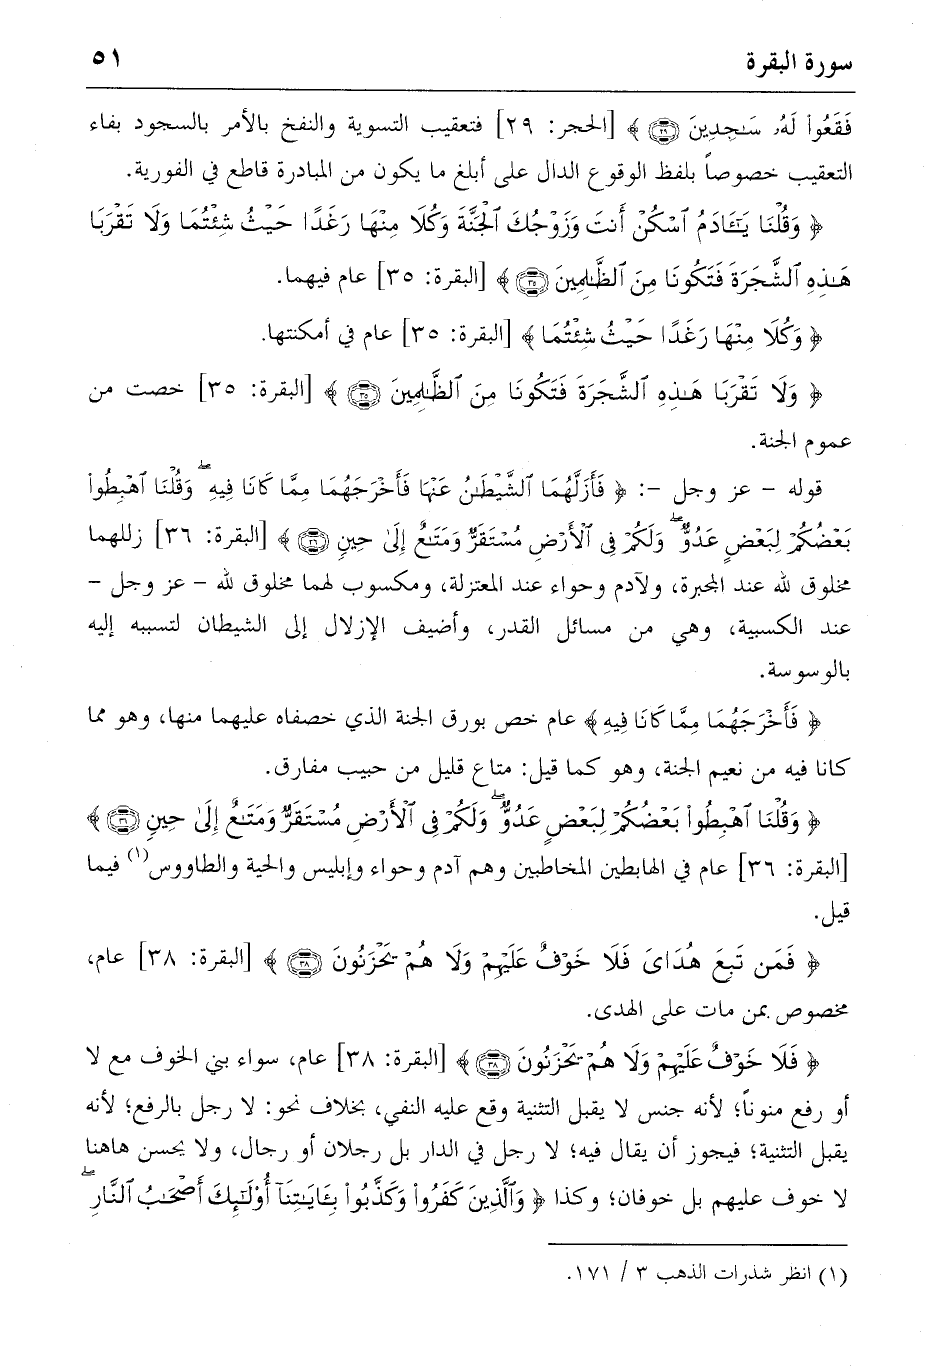 سورة البقرة ٥١
فَقَعُوا۟ لَهُۥ سَـٰجِدِينَ ۝٢٩ ﴾ [الحجر: ٢٩] فتعقيب التسوية والنفخ بالأمر بالسجود بفاء
التعقيب خصوصاً بلفظ الوقوع الدال على أبلغ ما يكون من المبادرة قاطع في الفورية.
﴿ وَقُلْنَا يَـٰٓـَٔادَمُ ٱسْكُنْ أَنتَ وَزَوْجُكَ ٱلْجَنَّةَ وَكُلَا مِنْهَا رَغَدًا حَيْثُ شِئْتُمَا وَلَا تَقْرَبَا
هَـٰذِهِ ٱلشَّجَرَةَ فَتَكُونَا مِنَ ٱلظَّـٰلِمِينَ ۝٣٥ ﴾ [البقرة: ٣٥] عام فيهما.
﴿ وَكُلَا مِنْهَا رَغَدًا حَيْثُ شِئْتُمَا ﴾ [البقرة: ٣٥] عام في أمكنتها.
﴿ وَلَا تَقْرَبَا هَـٰذِهِ ٱلشَّجَرَةَ فَتَكُونَا مِنَ ٱلظَّـٰلِمِينَ ۝٣٥ ﴾ [البقرة: ٣٥] خصت من
عموم الجنة.
قوله - عز وجل -: ﴿ فَأَزَلَّهُمَا ٱلشَّيْطَـٰنُ عَنْهَا فَأَخْرَجَهُمَا مِمَّا كَانَا فِيهِ ۖ وَقُلْنَا ٱهْبِطُوا۟
بَعْضُكُمْ لِبَعْضٍ عَدُوٌّ ۖ وَلَكُمْ فِى ٱلْأَرْضِ مُسْتَقَرٌّ وَمَتَـٰعٌ إِلَىٰ حِينٍ ۝٣٦ ﴾ [البقرة: ٣٦] زللهما
مخلوق لله عند المجبرة، ولآدم وحواء عند المعتزلة، ومكسوب لهما مخلوق لله - عز وجل -
عند الكسبية، وهي من مسائل القدر، وأضيف الإزلال إلى الشيطان لتسببه إليه
بالوسوسة.
﴿ فَأَخْرَجَهُمَا مِمَّا كَانَا فِيهِ ﴾ عام خص بورق الجنة الذي خصفاه عليهما منها، وهو مما
كانا فيه من نعيم الجنة، وهو كما قيل: متاع قليل من حبيب مفارق.
﴿ وَقُلْنَا ٱهْبِطُوا۟ بَعْضُكُمْ لِبَعْضٍ عَدُوٌّ ۖ وَلَكُمْ فِى ٱلْأَرْضِ مُسْتَقَرٌّ وَمَتَـٰعٌ إِلَىٰ حِينٍ ۝٣٦ ﴾
[البقرة: ٣٦] عام في الهابطين المخاطبين وهم آدم وحواء وإبليس والحية والطاووس(١) فيما
قيل.
﴿ فَمَن تَبِعَ هُدَاىَ فَلَا خَوْفٌ عَلَيْهِمْ وَلَا هُمْ يَحْزَنُونَ ۝٣٨ ﴾ [البقرة: ٣٨] عام،
مخصوص بمن مات على الهدى.
﴿ فَلَا خَوْفٌ عَلَيْهِمْ وَلَا هُمْ يَحْزَنُونَ ۝٣٨ ﴾ [البقرة: ٣٨] عام، سواء بني الخوف مع لا
أو رفع منوناً؛ لأنه جنس لا يقبل التثنية وقع عليه النفي، بخلاف نحو: لا رجل بالرفع؛ لأنه
يقبل التثنية؛ فيجوز أن يقال فيه؛ لا رجل في الدار بل رجلان أو رجال، ولا يحسن هاهنا
لا خوف عليهم بل خوفان؛ وكذا ﴿ وَٱلَّذِينَ كَفَرُوا۟ وَكَذَّبُوا۟ بِـَٔايَـٰتِنَآ أُو۟لَـٰٓئِكَ أَصْحَـٰبُ ٱلنَّارِ ۖ
(١) انظر شذرات الذهب ٣ / ١٧١.